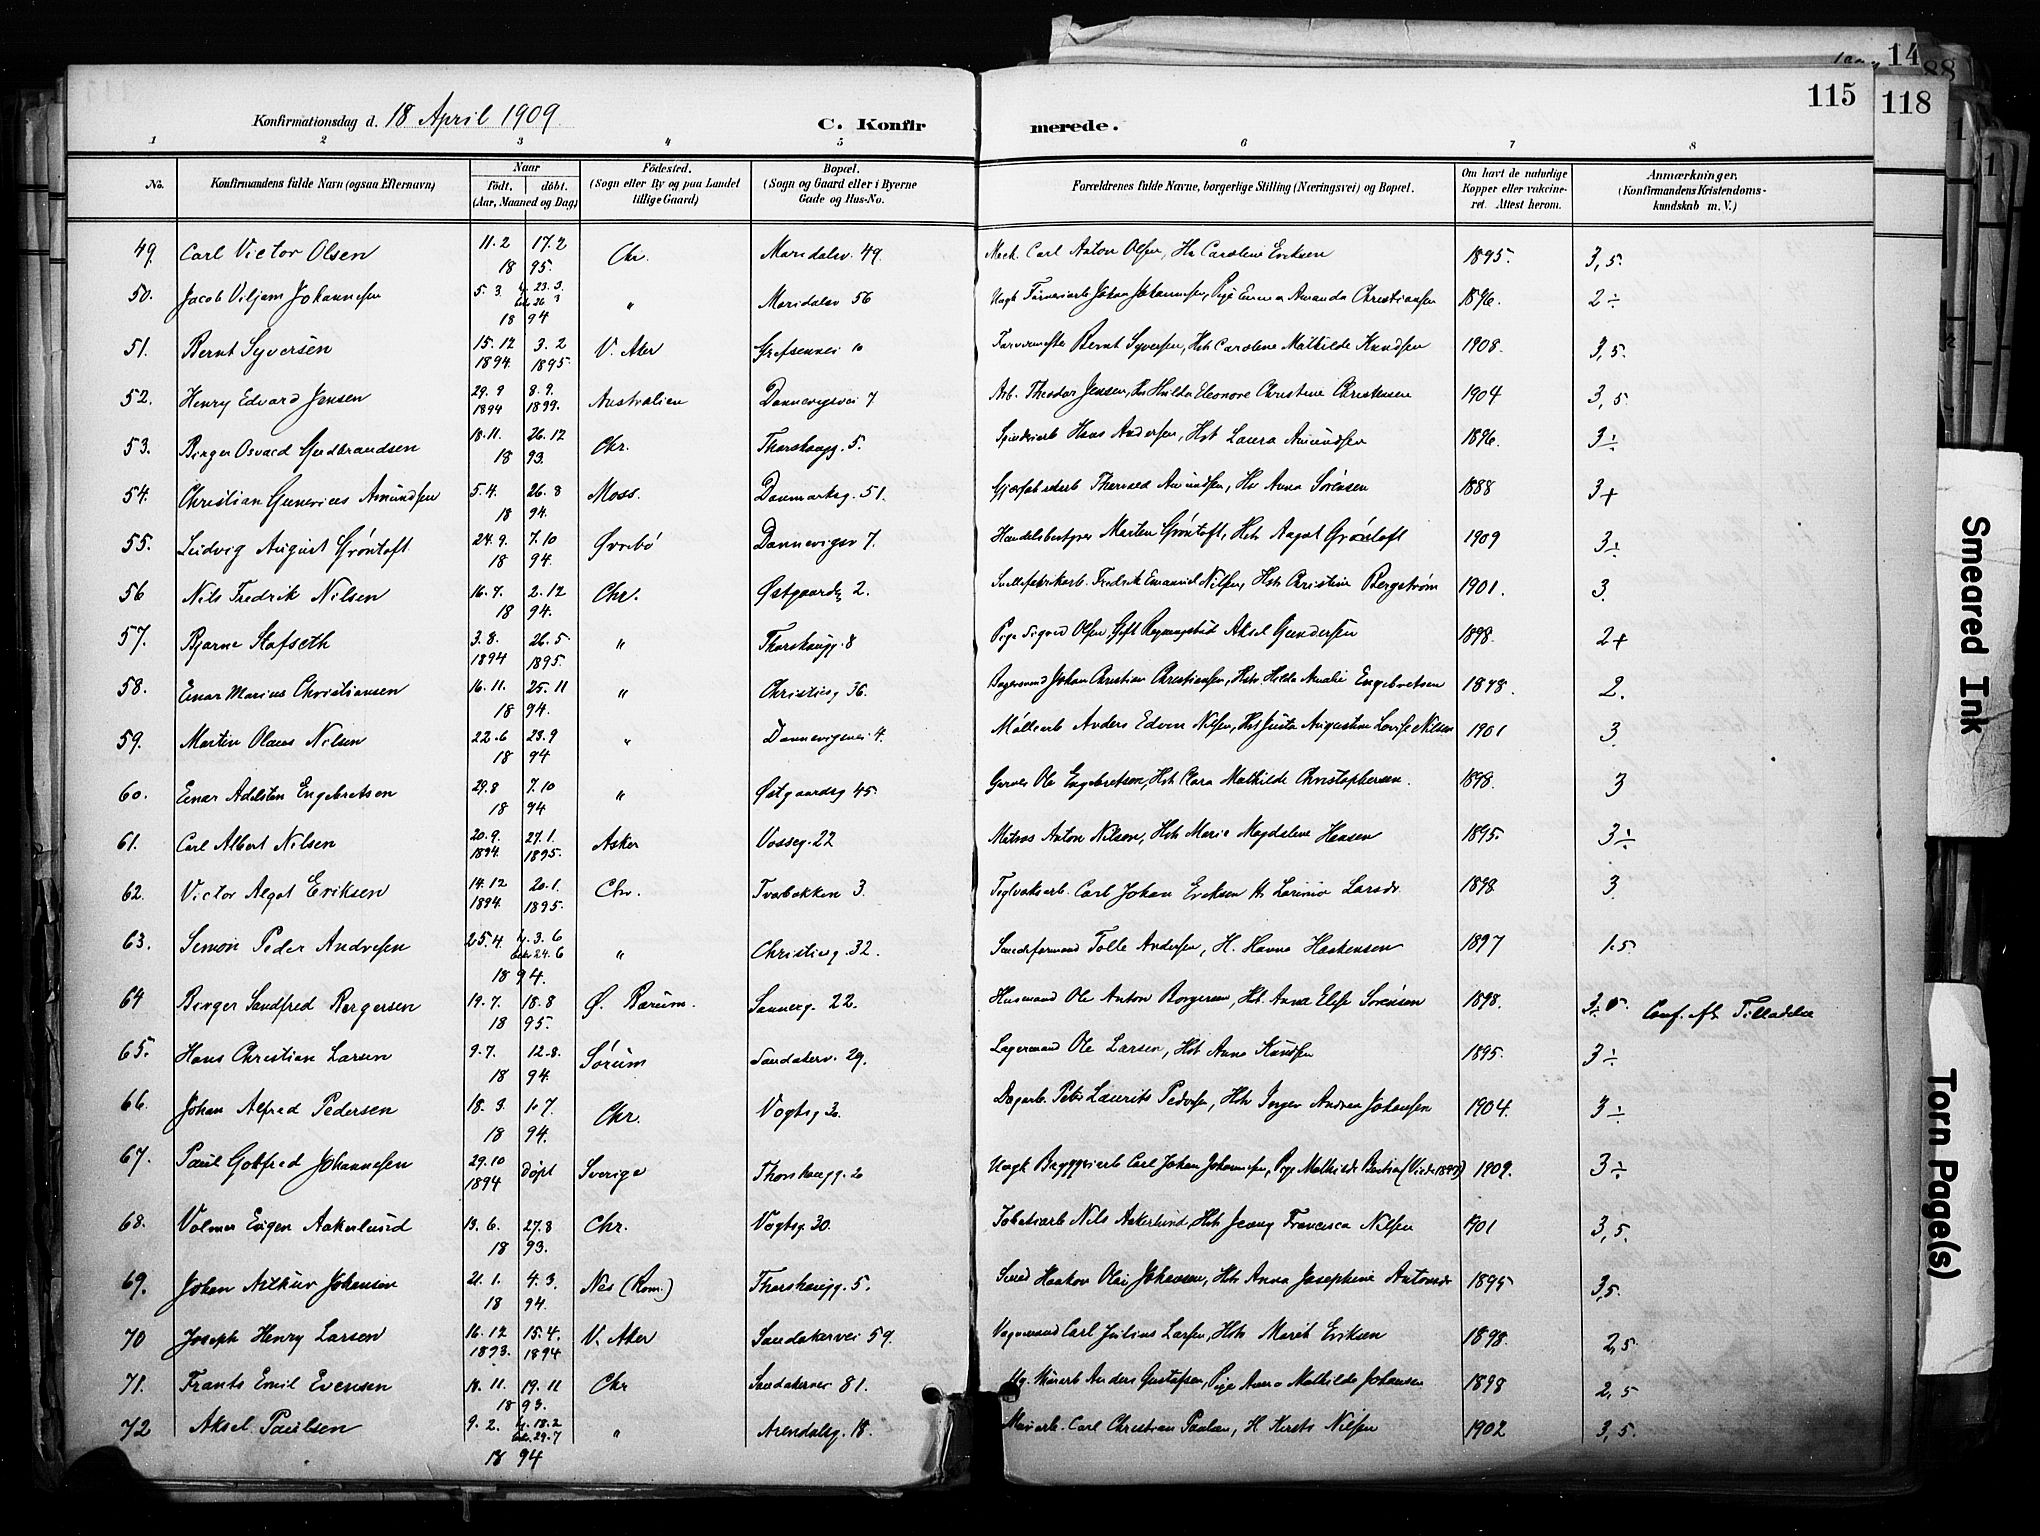 14
88
115
118
1
1
Konfirmationsdag d. 18 April 1909
C. Konfirmerede.
1 2 3 4 5 6 7 8
No. Konfirmandens fulde Navn (ogsaa Efternavn) Naar født. døbt. (Aar, Maaned og Dag) Fødested. (Sogn eller By og paa Landet tillige Gaard) Bopæl. (Sogn og Gaard eller i Byerne Gade og Hus-No. Forældrenes fulde Navne, borgerlige Stilling (Næringsvei) og Bopæl. Om havt de naturlige Kopper eller vakcineret. Attest herom. Anmærkninger. (Konfirmandens Kristendomskundskab m. V.)
49. Carl Victor Olsen 11.2 17.2 1895. Chr. Maridalsv. 49. Mek. Carl Anton Olsen, Hu Caroline Eriksen 1895. 3,5.
50. Jacob Viljam Johannesen 5.3 23.3. 26 3 1894 " Maridalsv 56 Johan Johannesen, Pige Emma Amanda Christiansen 1896. 2÷
51. Bernt Syversen 15.12 1894. 3.2 1895. V. Aker Grefsenvei 10 Bernt Syversen, Hst Caroline Mathilde Knudsen 1908. 3,5.
52. Henry Edvard Jensen 29.9 1894 8.9. 1899. Australien Dannevigsvei 7 Arb. Theodor Jensen, Hu Hulda Eleonore Christine Christensen 1904 3,5.
53. Birger Osvald Gudbrandsen 18.11. 26.12 1893. Chr. Thorshaugg. 5. Hans Andersen, Hst Laura Amundsen 1896. 3÷
54. Christian Gunerius Amundsen 5.4. 26.8 1894. Moss. Danmarksg. 51. Amundsen, Hu Anna Sørensen 1888 3+
55. Ludvig August Grøntoft 24.9. 7.10 1894. Øvrebø Dannevigsv 7. Handelsbestyrer Morten Grøntoft, Hst Aagot Grøntoft 1909 3÷
56 Nils Fredrik Nilsen 16.7. 2.12 1894. Chr. Østgaardsg 2. Fredrik Emanuel Nilsen, Hst Christine Bergstrøm 1901. 3.
57. Bjarne Stafseth 3.8. 1894 26.5 1895. " Thorshaugg. 8 Pige Sigrid Olsen, Aksel Gundersen 1898. 2+
58. Einar Marius Christiansen 16.11. 25.11 1894. " Christiesg 36. Johan Christian Christiansen, Hst Hilda Amalie Engebretsen 1898. 2.
59. Martin Olaus Nilsen 22.6 23.9 1894 " Dannevigsvei 4. Møllearb Anders Edvin Nilsen, Hst Justa Augustine Lovise Nilsen 1901 3.
60. Einar Adelsten Engebretsen 29.8 7.10 1894 " Østgaardsg 45. Garver Ole Engebretsen, Hst Clara Mathilde Christophersen. 1898. 3
61. Carl Albert Nilsen 20.9. 1894. 27.1. 1895. Asker Vosseg. 22 Matros Anton Nilsen, Hst Marie Magdalene Hansen 1895. 3÷
62. Victor Algot Eriksen 14.12 1894. 20.1. 1895. Chr. Tvarbakken 3. Teglverksarb. Carl Johan Eriksen H Larsdr. 1898 3
63. Simon Peder Andresen 25.4. 3.6 24.6 1894. " Christiesg. 32. Tolle Andersen, H. Hanna Haakensen 1897 1.5
64 Birger Sandfred Børgersen 19.7. 18.8 1895. Ø. Bærum. Sannerg. 22. Husmand Ole Anton Børgersen, Hst. Anna Elise Sørensen 1898. Conf. eft. Tilladelse
65. Hans Christian Larsen 9.7. 12.8. 1894. Sørum Sandakerv. 29. Lagermand Ole Larsen, Hst Anna Knudsen 1895. 3÷
66. Johan Alfred Pedersen 18.3. 1.7 1894. Chr. Vogtsg Dagarb. Peter Laurits Pedersen, Hst Inger Andrea Johansen 1904. 3÷
67. Paul Gotfred Johannesen 29.10 1894 døpt Sverige Thorshaugg. Carl Johan Johannesen, Pige Mathilde 1909. 3÷
68. Volmer Eugen Aakerlund 13.6. 27.8 1893. Chr. Vogtsg. 30. Nils Aakerlund, Hst Jenny Francisca Nilsen 1901 3,5.
69. Johan Arthur Johansen 21.1. 4.3. 1894. Nes (Rom.) Thorshaugg. 5. Smed Haakon Olai Johansen, Hst Anna Josephine Antonsdr 1895 3,5.
70 Joseph Henry Larsen 16.12 1893. 15.4. 1894 V. Aker Sandakervei 59. Vognmand Carl Julius Larsen, Hst Marit Eriksen 1898. 2,5
71. Frants Emil Evensen 11. 19.11 1893. Chr Sandakervei 81. Anders Gustafsen, Pige Anna Mathilde Johansen 1898 2,5
72 Aksel Paulsen 9.2. 18.2 29.7 1894 " Arendalsg. 18. Murarb. Carl Christian Paulsen, H Kirsti Nilsen 1902 3,5.
Smeared Ink
Torn Page(s)